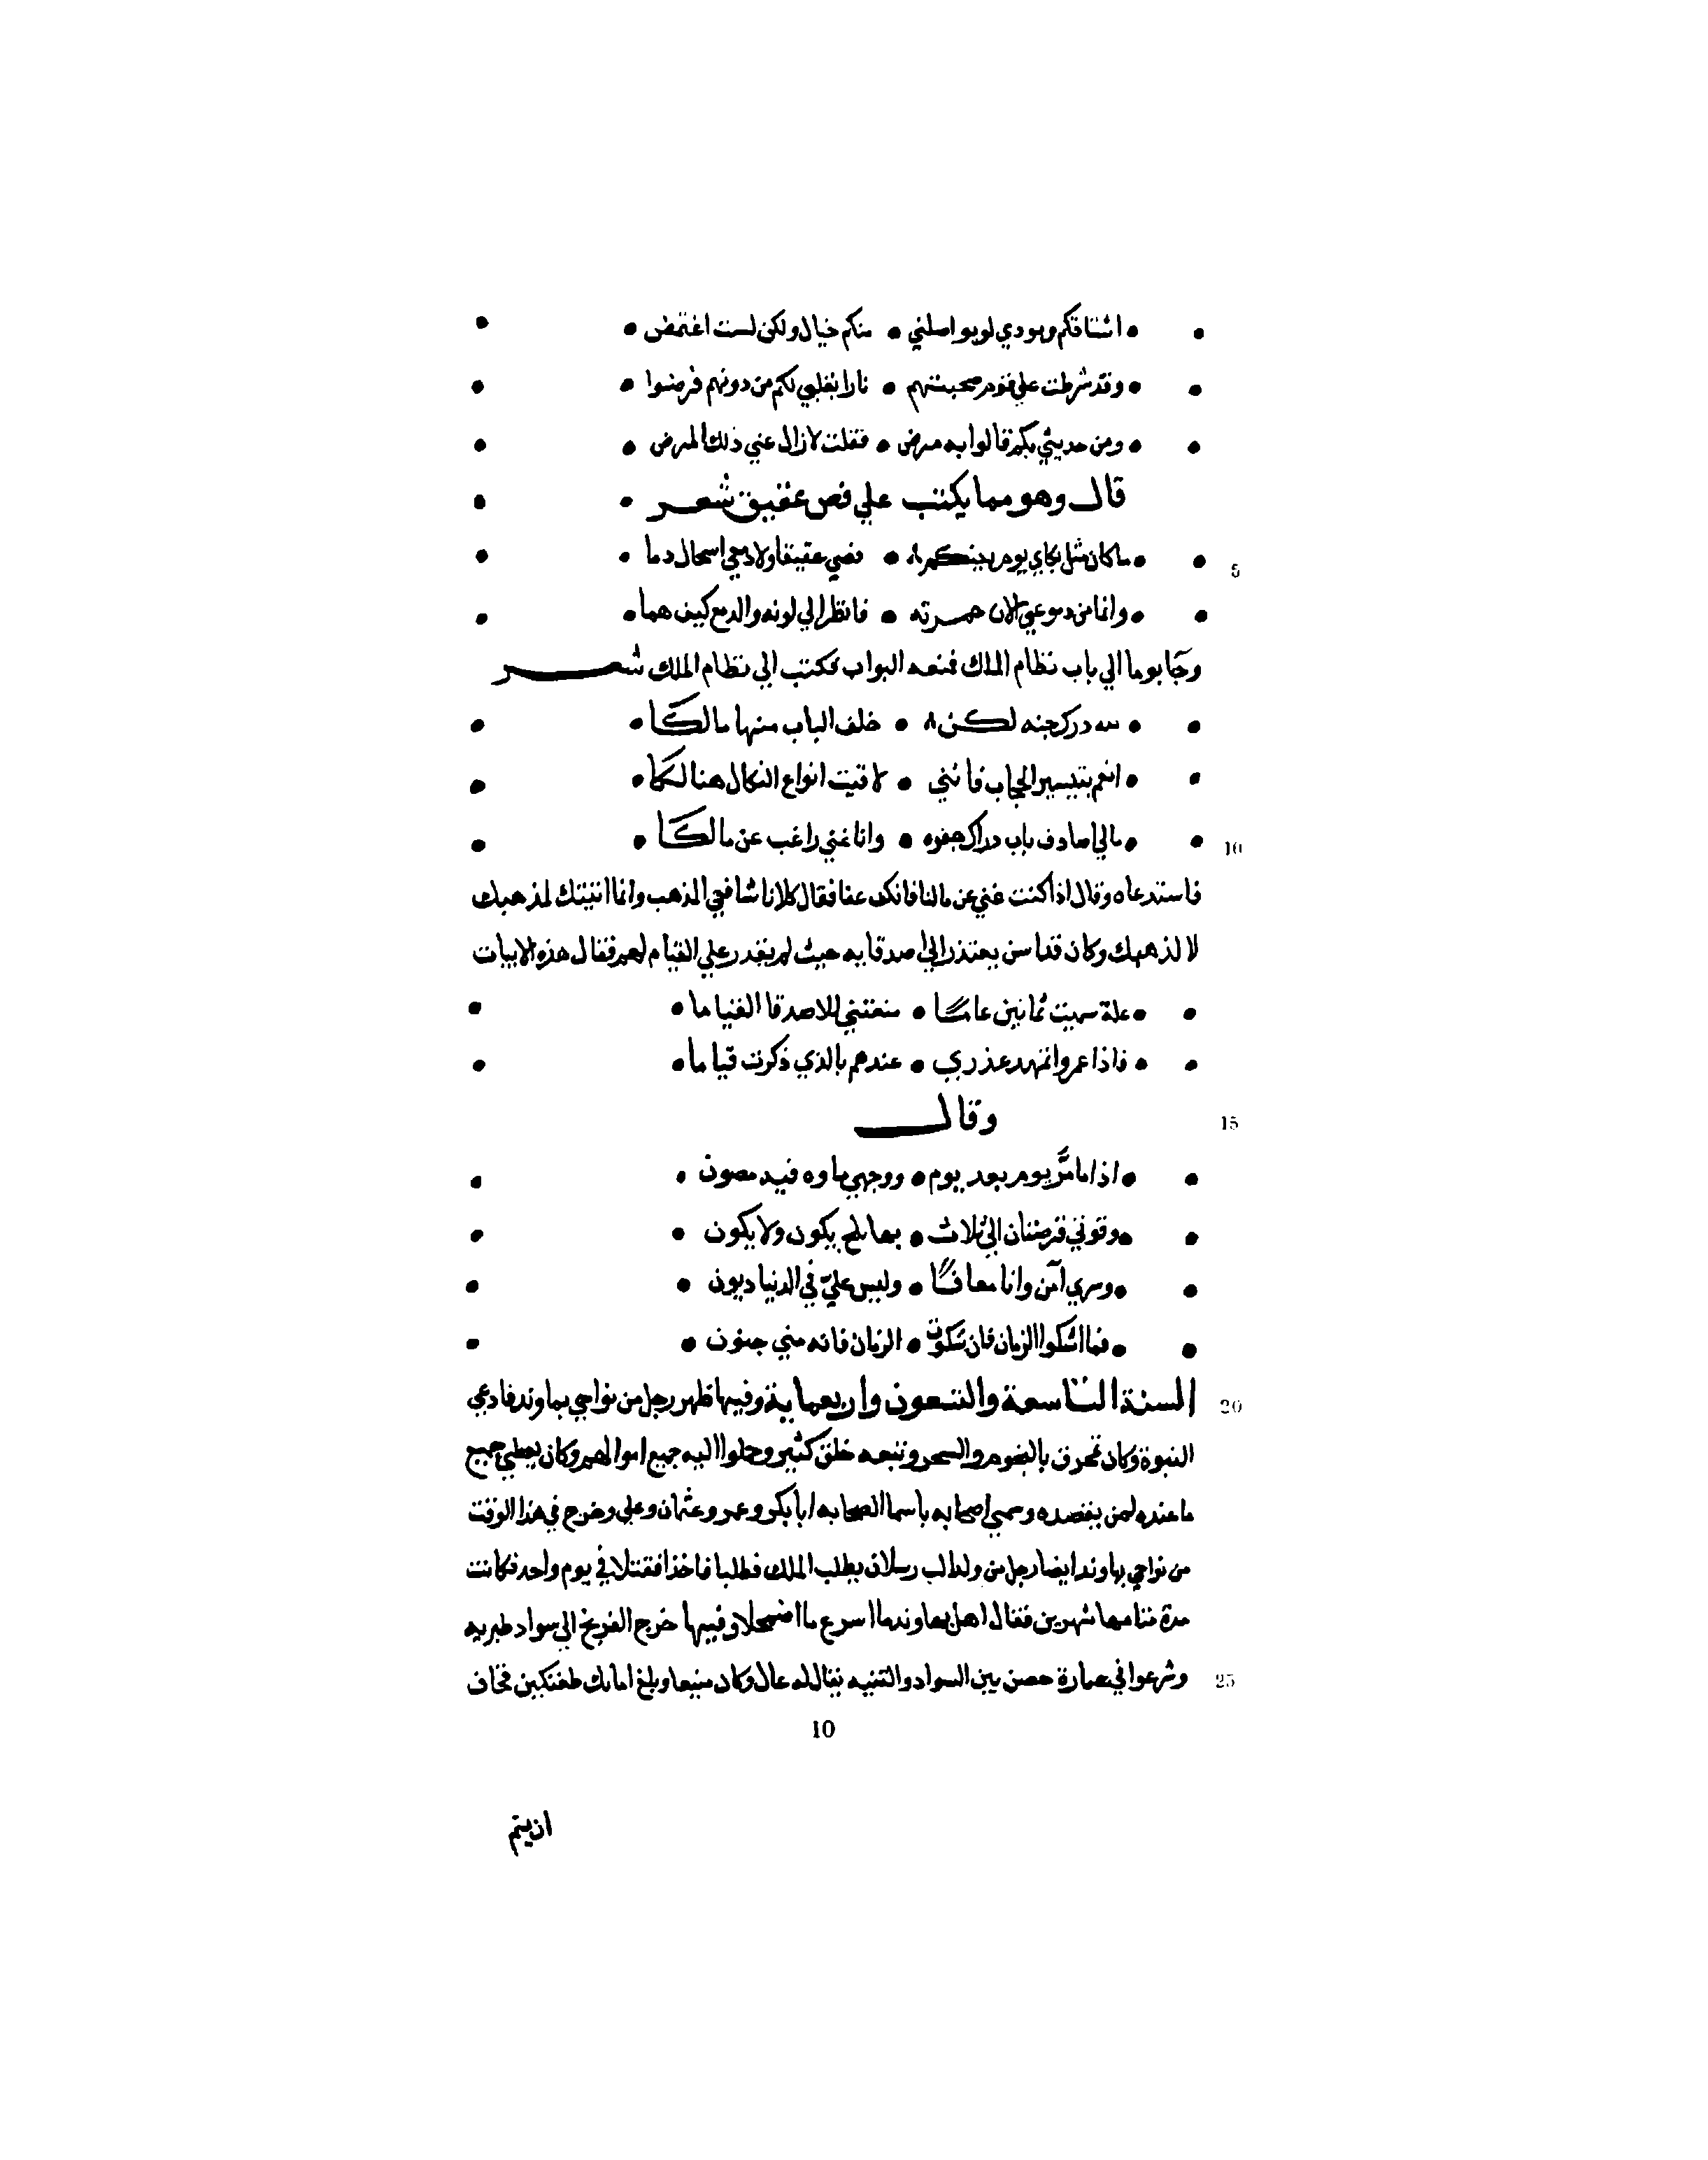 • • اشتاقكم وبودي لو يواصلني • منكم خيال ولكن لست اغتمض • •
• • وقد شرطت علي قوم صحبتهم • نارا بقلبي لكم من دونهم فرضوا • •
• • ومن حديثي بكم قالوا به مرض • فقلت لا زال عني ذلك المرض • •
قال وهو مما يكتب علي فص عقيق شعر • •
• • ما كان مثل بكاي يوم بينكم • فصي عقيقا ولا دمعي استحال دما • • 5
• • وانما من دموعي الان حمرته • فانظر الي لونه والدمع كيف هما • •
وجا يوما الي باب نظام الملك فمنعه البواب فكتب الي نظام الملك شعر
• • لله درك جنه لكن • خلف الباب منها مالكا • •
• • انعم بتيسير الحجاب فانني • لاقيت انواع النكال هنالكا • •
• • مالي اصادف باب دارك جفوه • وانا غني راغب عن مالكا • • 10
فاستدعاه وقال اذا كنت غني عن مالنا فانكف عنا فقال كلانا شافعي المذهب وانما اتيتك لمذهبك
لا لذهبك وكان قد اسن يعتذر الي اصدقايه حيث لم يقدر علي القيام لهم فقال هذه الابيات
• • علة سميت ثمانين عاما • منعتني للاصدقا القياما • •
• • فاذا عمروا تمهد عذري • عندهم بالذي ذكرت قياما • •
وقال 15
• • اذا ما مرّ يوم بعد يوم • ووجهي ماوه فيه مصون • •
• • وقوتي قرصتان الي ثلاث • بها ملح يكون ولا يكون • •
• • وسربي آمن وانا معافاً • وليس عليّ في الدنيا ديون • •
• • فما اشكوا الزمان فان شكوت • الزمان فانه مني جنون • •
السنة التاسعة والتسعون واربعماية وفيها ظهر رجل من نواحي نهاوند فادعي 20
النبوة وكان تمخرق بالنجوم والسحر وتبعه خلق كثير وحملوا اليه جميع اموالهم وكان يعطي جميع
ما عنده لمن يقصده وسمي اصحابه باسما الصحابه ابا بكر وعمر وعثمان وعلي وخرج في هذا الوقت
من نواحي نهاوند ايضا رجل من ولد الب رسلان يطلب الملك فطلبا فاخذا فقتلا في يوم واحد فكانت
مدة مقامهما شهرين فقال اهل نهاوند ما اسرع ما اضمحلا وفيها خرج الفرنج الي سواد طبريه
وشرعوا في عمارة حصن بين السواد والثنيه يقال له عال وكان منيعا وبلغ اتابك طغتكين فخاف 25
10
ان يتم